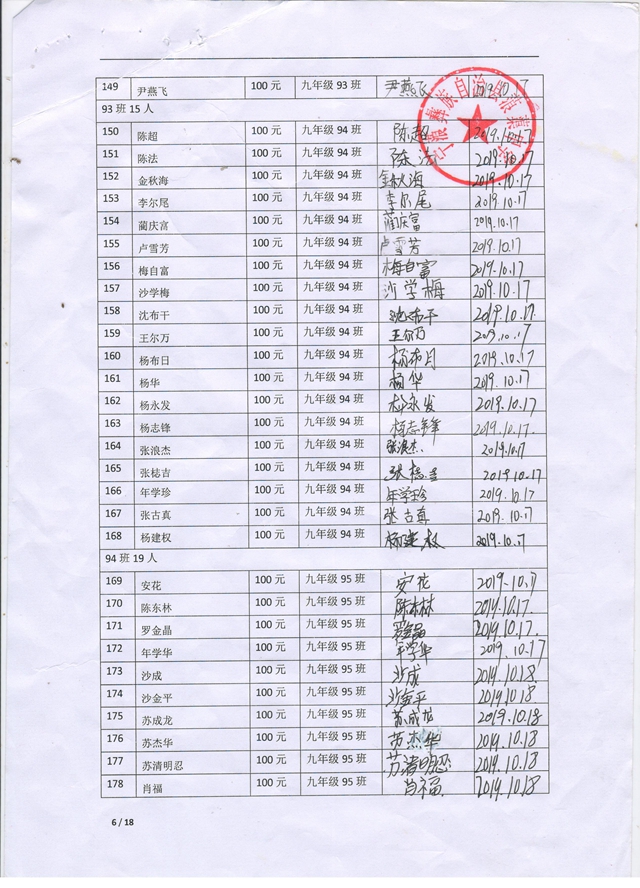 149 尹燕飞 100元 九年级93班 尹燕飞 2019.10.17
93班15人
150 陈超 100元 九年级94班 陈超 2019.10.17
151 陈法 100元 九年级94班 陈法 2019.10.17
152 金秋海 100元 九年级94班 金秋海 2019.10.17
153 李尔尾 100元 九年级94班 李尔尾 2019.10.17
154 蔺庆富 100元 九年级94班 蔺庆富 2019.10.17
155 卢雪芳 100元 九年级94班 卢雪芳 2019.10.17
156 梅自富 100元 九年级94班 梅自富 2019.10.17
157 沙学梅 100元 九年级94班 沙学梅 2019.10.17
158 沈布干 100元 九年级94班 沈布干 2019.10.17
159 王尔万 100元 九年级94班 王尔万 2019.10.17
160 杨布日 100元 九年级94班 杨布日 2019.10.17
161 杨华 100元 九年级94班 杨华 2019.10.17
162 杨永发 100元 九年级94班 杨永发 2019.10.17
163 杨志锋 100元 九年级94班 杨志锋 2019.10.17
164 张浪杰 100元 九年级94班 张浪杰 2019.10.17
165 张梽吉 100元 九年级94班 2019.10.17
166 年学珍 100元 九年级94班 年学珍 2019.10.17
167 张古真 100元 九年级94班 张古真 2019.10.17
168 杨建权 100元 九年级94班 杨建权 2019.10.17
94班19人
169 安花 100元 九年级95班 安花 2019.10.17
170 陈东林 100元 九年级95班 陈东林 2019.10.17.
171 罗金晶 100元 九年级95班 罗金晶 2019.10.17.
172 年学华 100元 九年级95班 年学华 2019.10.17
173 沙成 100元 九年级95班 沙成 2019.10.18.
174 沙金平 100元 九年级95班 沙金平 2019.10.18
175 苏成龙 100元 九年级95班 苏成龙 2019.10.18
176 苏杰华 100元 九年级95班 苏杰华 2019.10.18
177 苏清明忍 100元 九年级95班 苏清明忍 2019.10.18
178 肖福 100元 九年级95班 肖福 2019.10.18
6 / 18